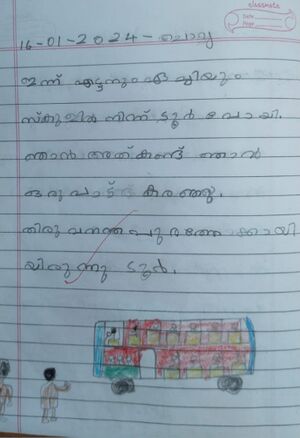 classmate
Date
Page
16-01-2024 - ചൊവ്വ
ഇന്ന് ഏട്ടനും ഏച്ചിയും
സ്കൂളിൽ നിന്ന് ടൂർ പോയി.
ഞാൻ അത്കണ്ട് ഞാൻ
ഒരുപാട് കരഞ്ഞു.
തിരുവനന്തപുരത്തേക്കായി
യിരുന്നു ടൂർ.